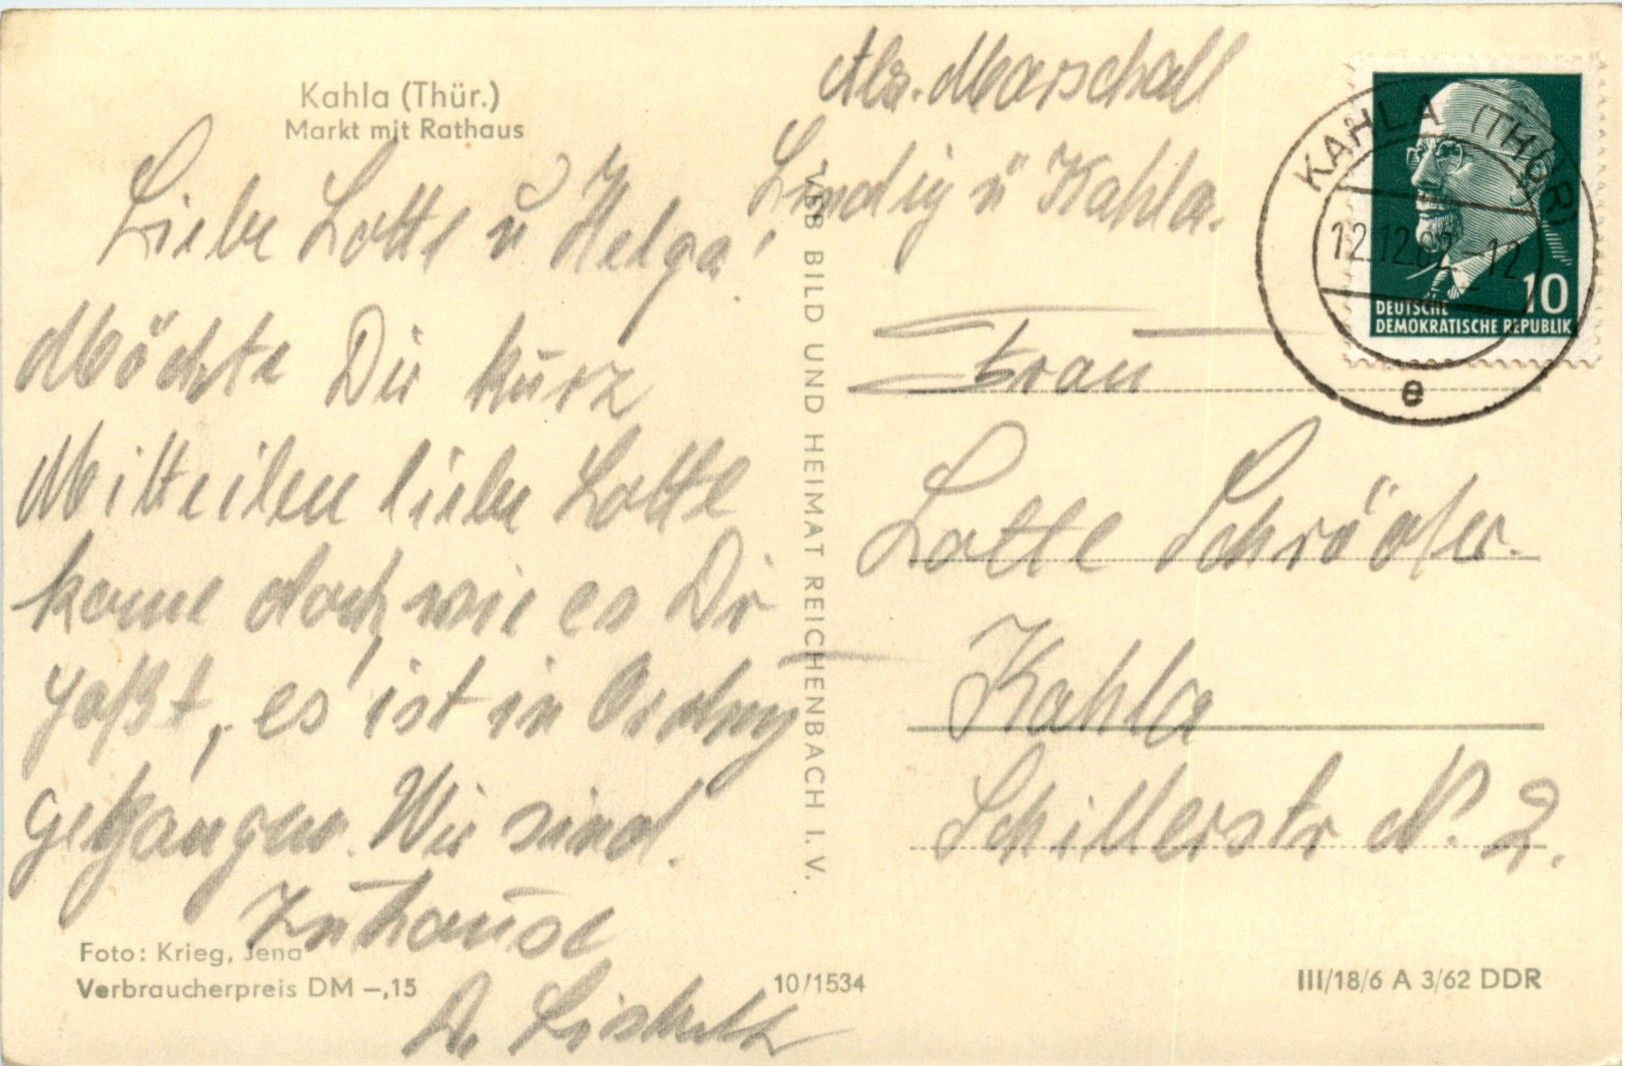 Kahla (Thür.)
Markt mit Rathaus
Liebe Lotte u Helga!
Möchte Dir kurz
Mitteilen liebe Lotte
kome doch, wie es Dir
paßt, es ist in Ordng
gegangen. Wir sind.
Zuhause
D.
Foto: Krieg, Jena
Verbraucherpreis DM –,15
10/1534
VEB BILD UND HEIMAT REICHENBACH I. V.
Abs. Marschall
Lindig ü Kahla.
KAHLA (THÜR)
12.12.62.-12
e
10
DEUTSCHE
DEMOKRATISCHE REPUBLIK
Frau
Lotte Schröter.
Kahla
Schillerstr N. 2.
III/18/6 A 3/62 DDR